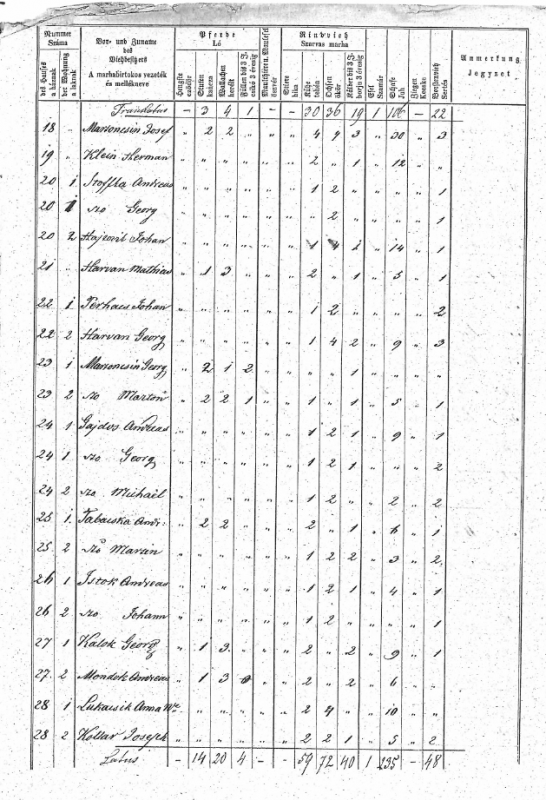 Nummer Száma | Vor- und Zuname des Viehbesitzers A marhabirtokos vezeték és mellékneve | Pferde Ló | Rindvieh Szarvas marha | Anmerkung Jegyzet
des Hauses a háznak | der Wohnung a laknak | Hengste csődör | Stuten kancza | Wallachen herélt | Füllen bis 3 J. csikó 3 évig | Maulthiere, Maulesel öszvér | Stiere bika | Kühe tehén | Ochsen ökör | Kälber bis 3 J. borju 3 évig | Esel Szamár | Schafe Juh | Ziegen Kecske | Borstenvieh Sertés
Translatus - 3 4 1 - - 30 36 19 1 106 - 22
18 Maroncsin Josef " 2 2 " " " 4 4 3 " 30 " 3
19 " Klein Herman " " " " " " 2 " 1 " 12 " "
20 1 Andreas " " " " " " 1 2 " " " " 1
20 1 dto Georg " " " " " " " 2 " " " " 1
20 2 Johan " " " " " " 1 4 1 " 14 " 1
21 " Harvan Mathias " 1 3 " " " 2 " 1 " 5 " 1
22 1 Johan " " " " " " 1 2 " " " " 2
22 2 Harvan Georg " " " " " " 1 4 2 " 9 " 3
23 1 Maroncsin Georg " 2 1 2 " " " " 1 " " " "
23 2 dto Marton " 2 2 1 " " 1 " 1 " 5 " 1
24 1 Gajdos Andreas " " " " " " 1 2 1 " 9 " 1
24 1 dto Georg " " " " " " 1 2 1 " " " 2
24 2 dto Michaël " " " " " " 1 2 " " 2 " 2
25 1 Tabacska Andr: " 2 2 " " " 2 " 1 " 6 " 1
25 2 dto " " " " " " 1 2 2 " 3 " 2
26 1 Istok Andreas " " " " " " 1 2 1 " 4 " 1
26 2 dto Johann " " " " " " 1 2 " " " " 1
27 1 Kalok Georg " 1 3 " " " 2 " 2 " 9 " 1
27 2 Mondok Andreas " 1 3 " " " 2 " 2 " 6 " "
28 1 Lukacsik Anna We " " " " " " 2 4 " " 10 " "
28 2 Kollar Joseph " " " " " " 2 2 1 " 5 " 2
Latus - 14 20 4 - - 59 72 40 1 235 - 48